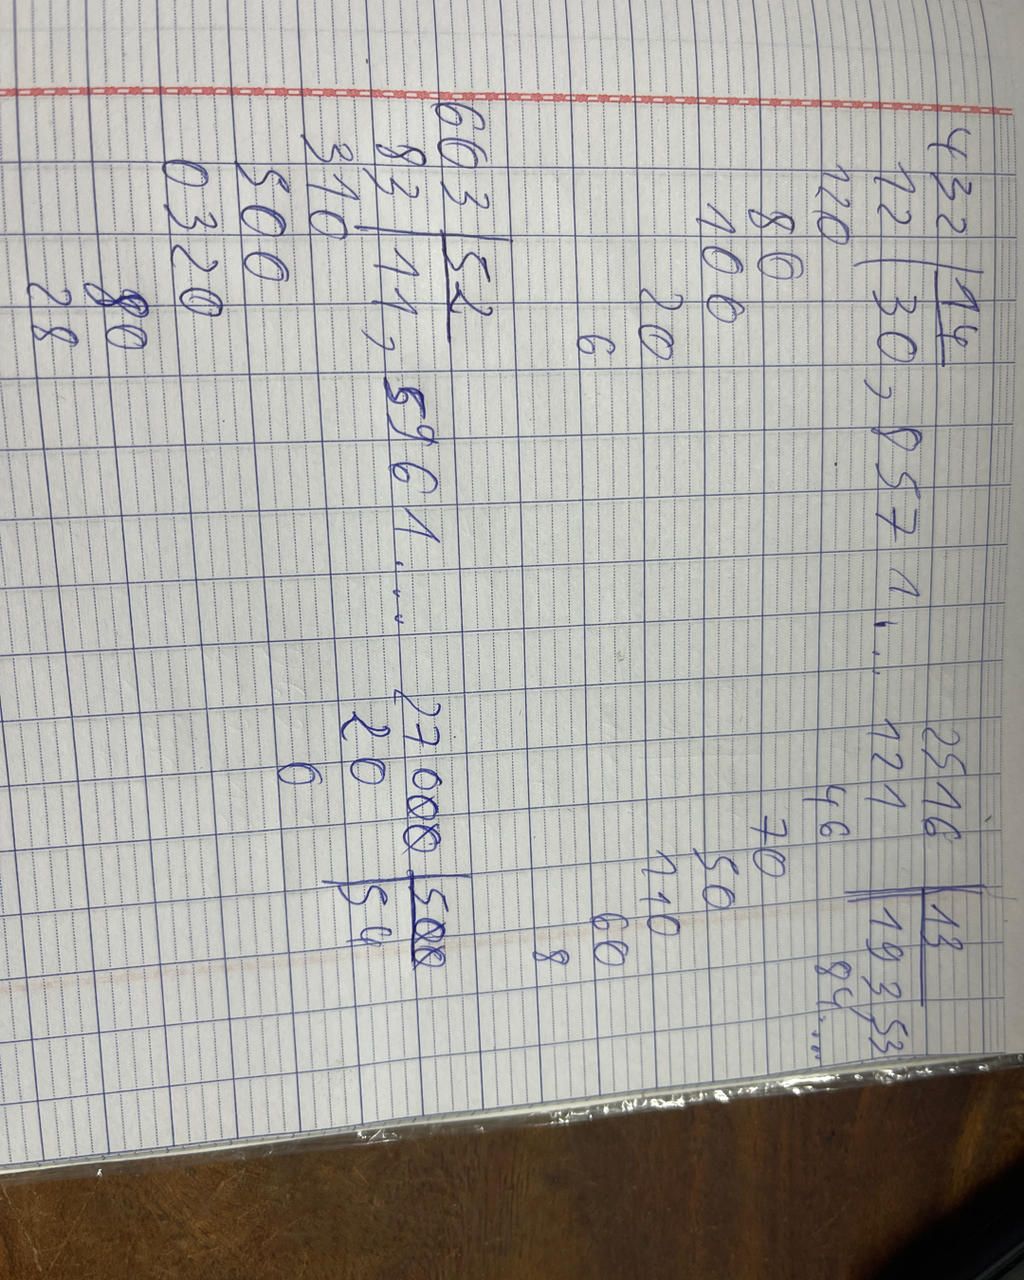 432 | 14
12 | 30,8571...
120
80
100
20
6
2516 | 13
121 | 193,53
46 84...
70
50
110
60
8
603 | 52
83 | 11,5961...
310
500
0320
80
28
27000 | 500
20 | 54
0